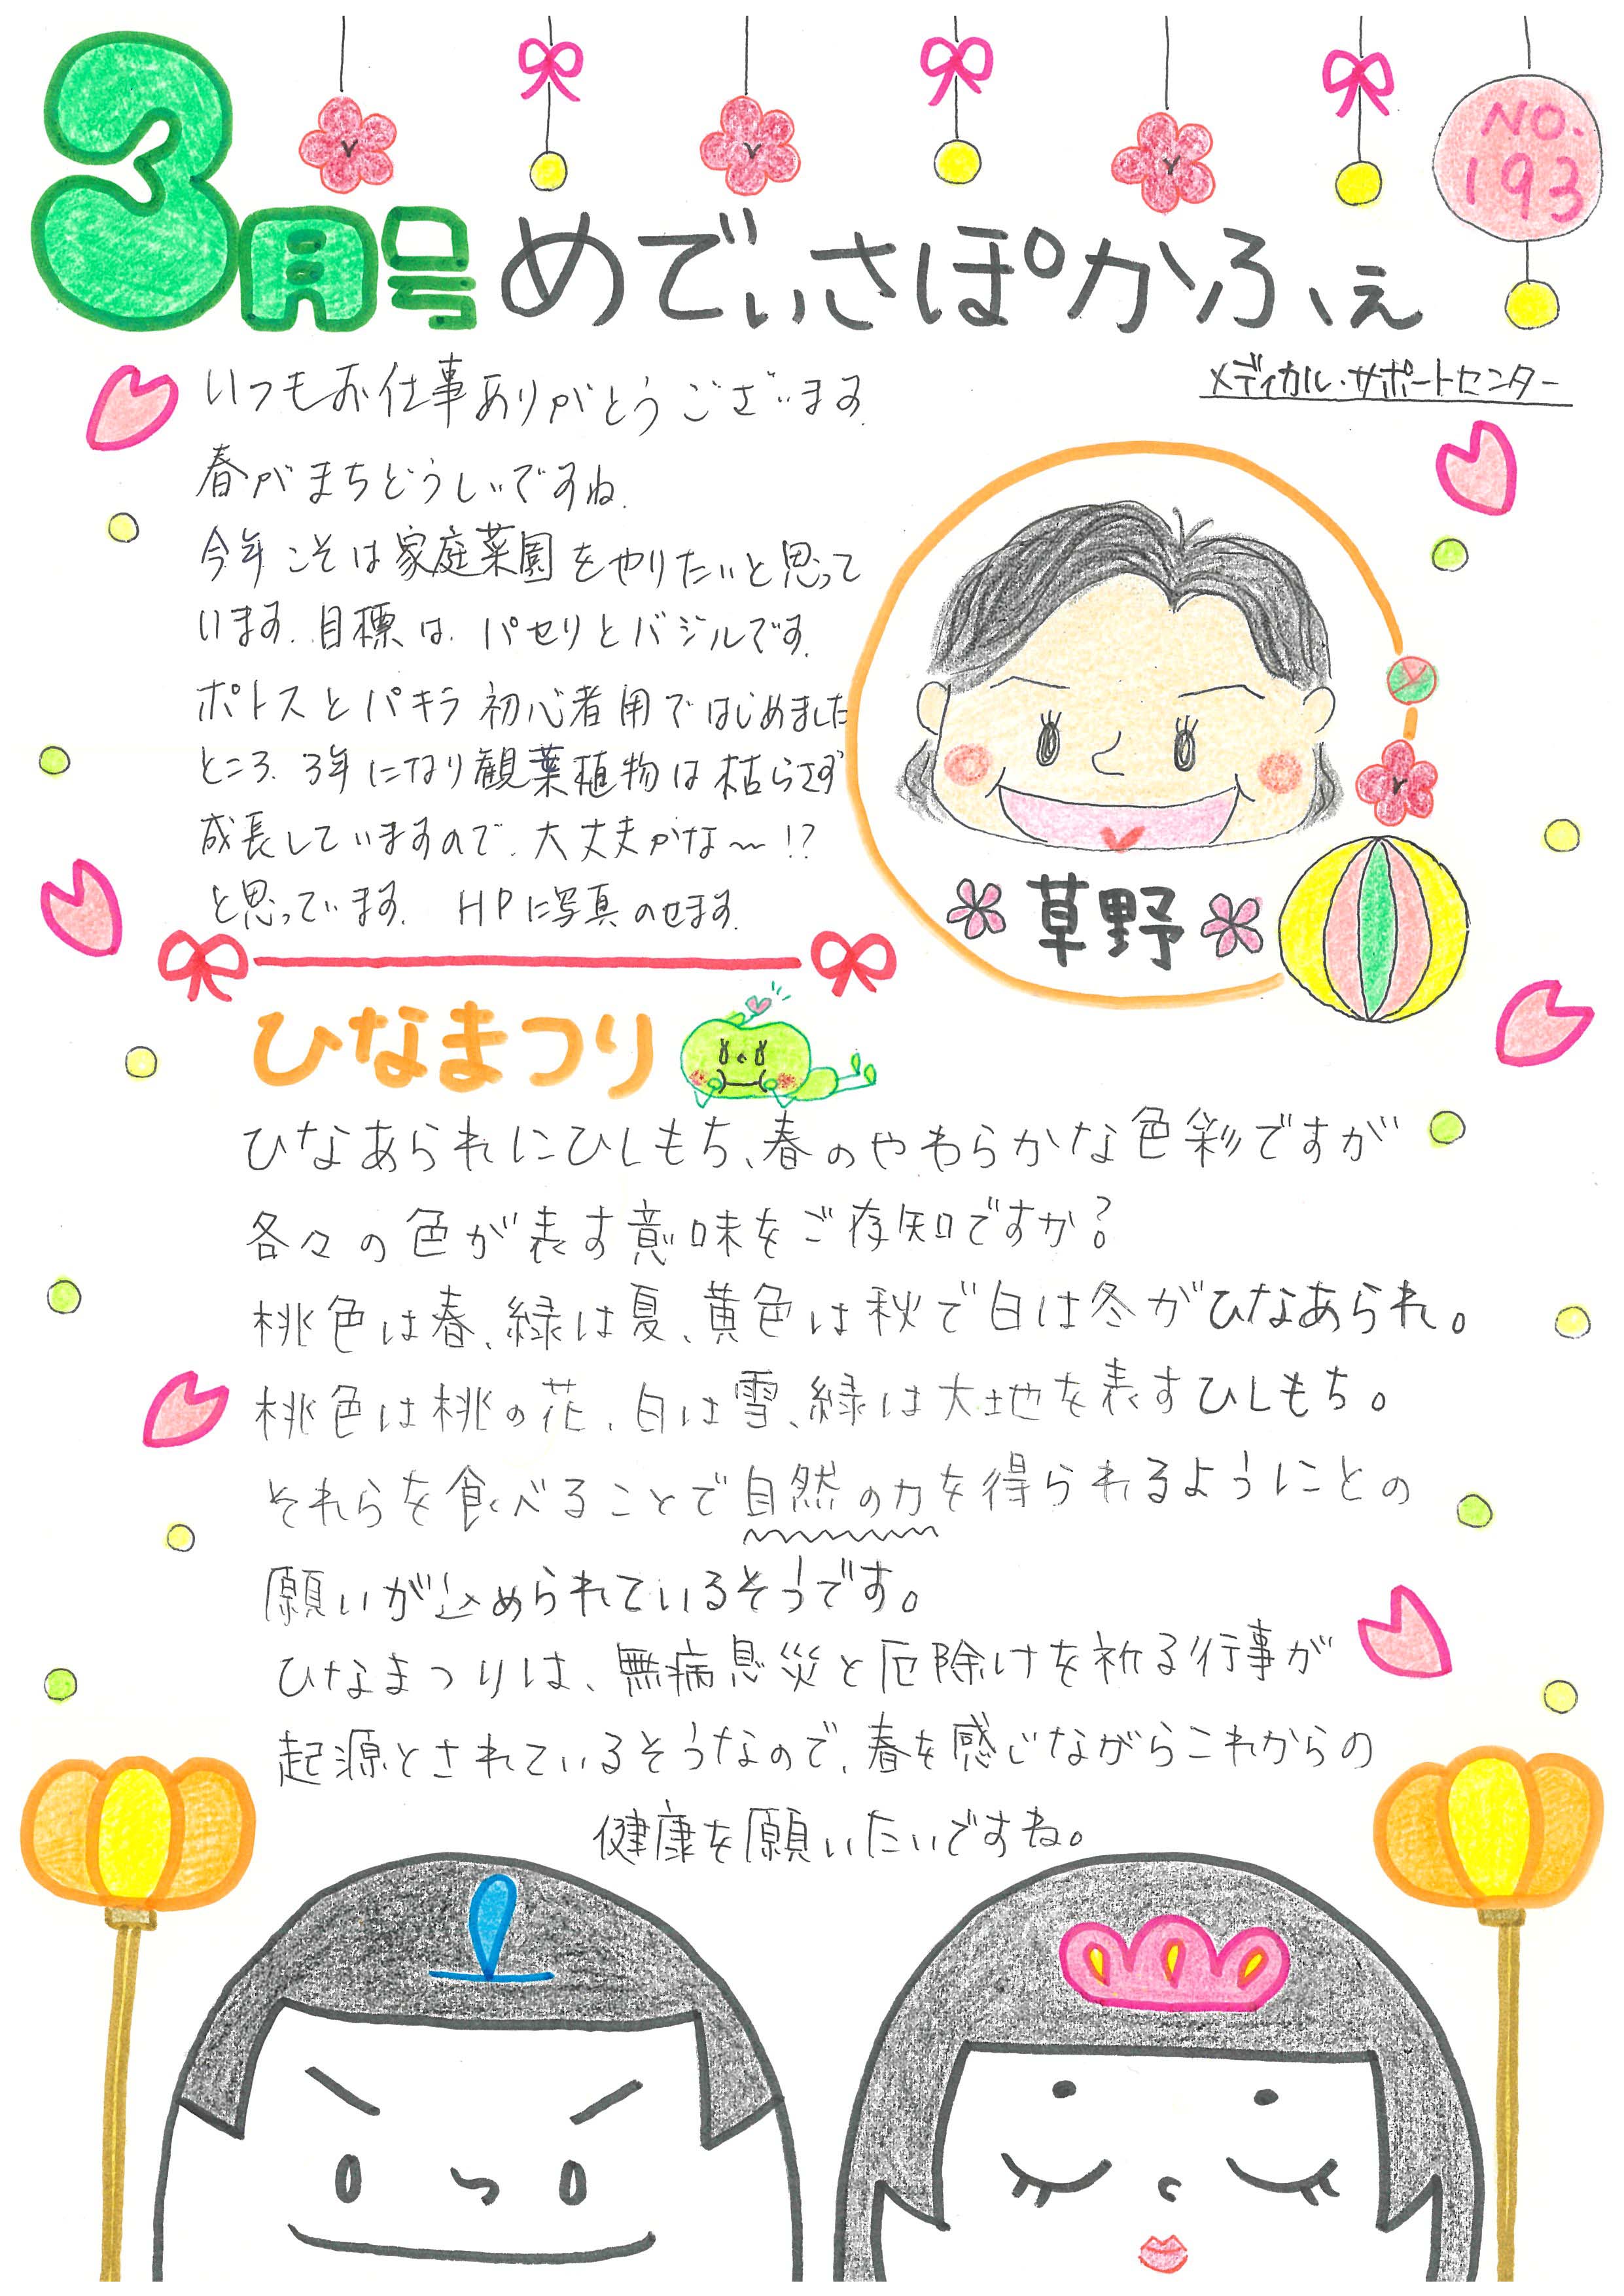 3月号 めでぃさぽかふぇ
NO.
193
メディカル・サポートセンター
いつもお仕事ありがとうございます.
春がまちどうしいですね.
今年こそは家庭菜園をやりたいと思って
います. 目標は. パセリとバジルです.
ポトスとパキラ初心者用ではじめました
ところ. 3年になり観葉植物は枯らさず
成長していますので. 大丈夫かな〜!?
と思っています. HPに写真のせます.
草野
ひなまつり
ひなあられにひしもち、春のやわらかな色彩ですが
各々の色が表す意味をご存知ですか?
桃色は春、緑は夏、黄色は秋で白は冬がひなあられ。
桃色は桃の花、白は雪、緑は大地を表すひしもち。
それらを食べることで自然の力を得られるようにとの
願いが込められているそうです。
ひなまつりは、無病息災と厄除けを祈る行事が
起源とされているそうなので、春を感じながらこれからの
健康を願いたいですね。